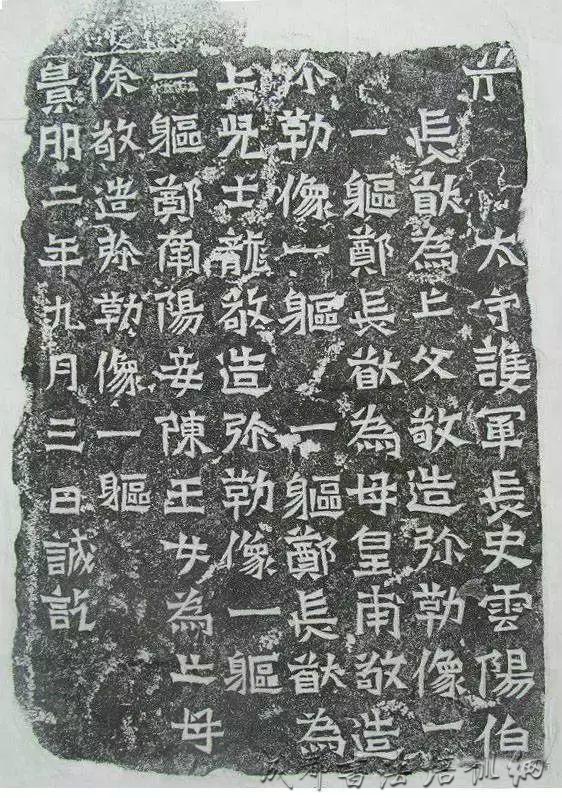 太守護軍長史雲陽伯
長猷為亡父敬造弥勒像一
一軀鄭長猷為母皇甫敬造
弥勒像一軀 一軀鄭長猷為
亡兒士龍敬造弥勒像一軀
一軀鄭南陽妾陳玉女為亡母
徐敬造弥勒像一軀
景明二年九月三日誡訖
成都书法培训网